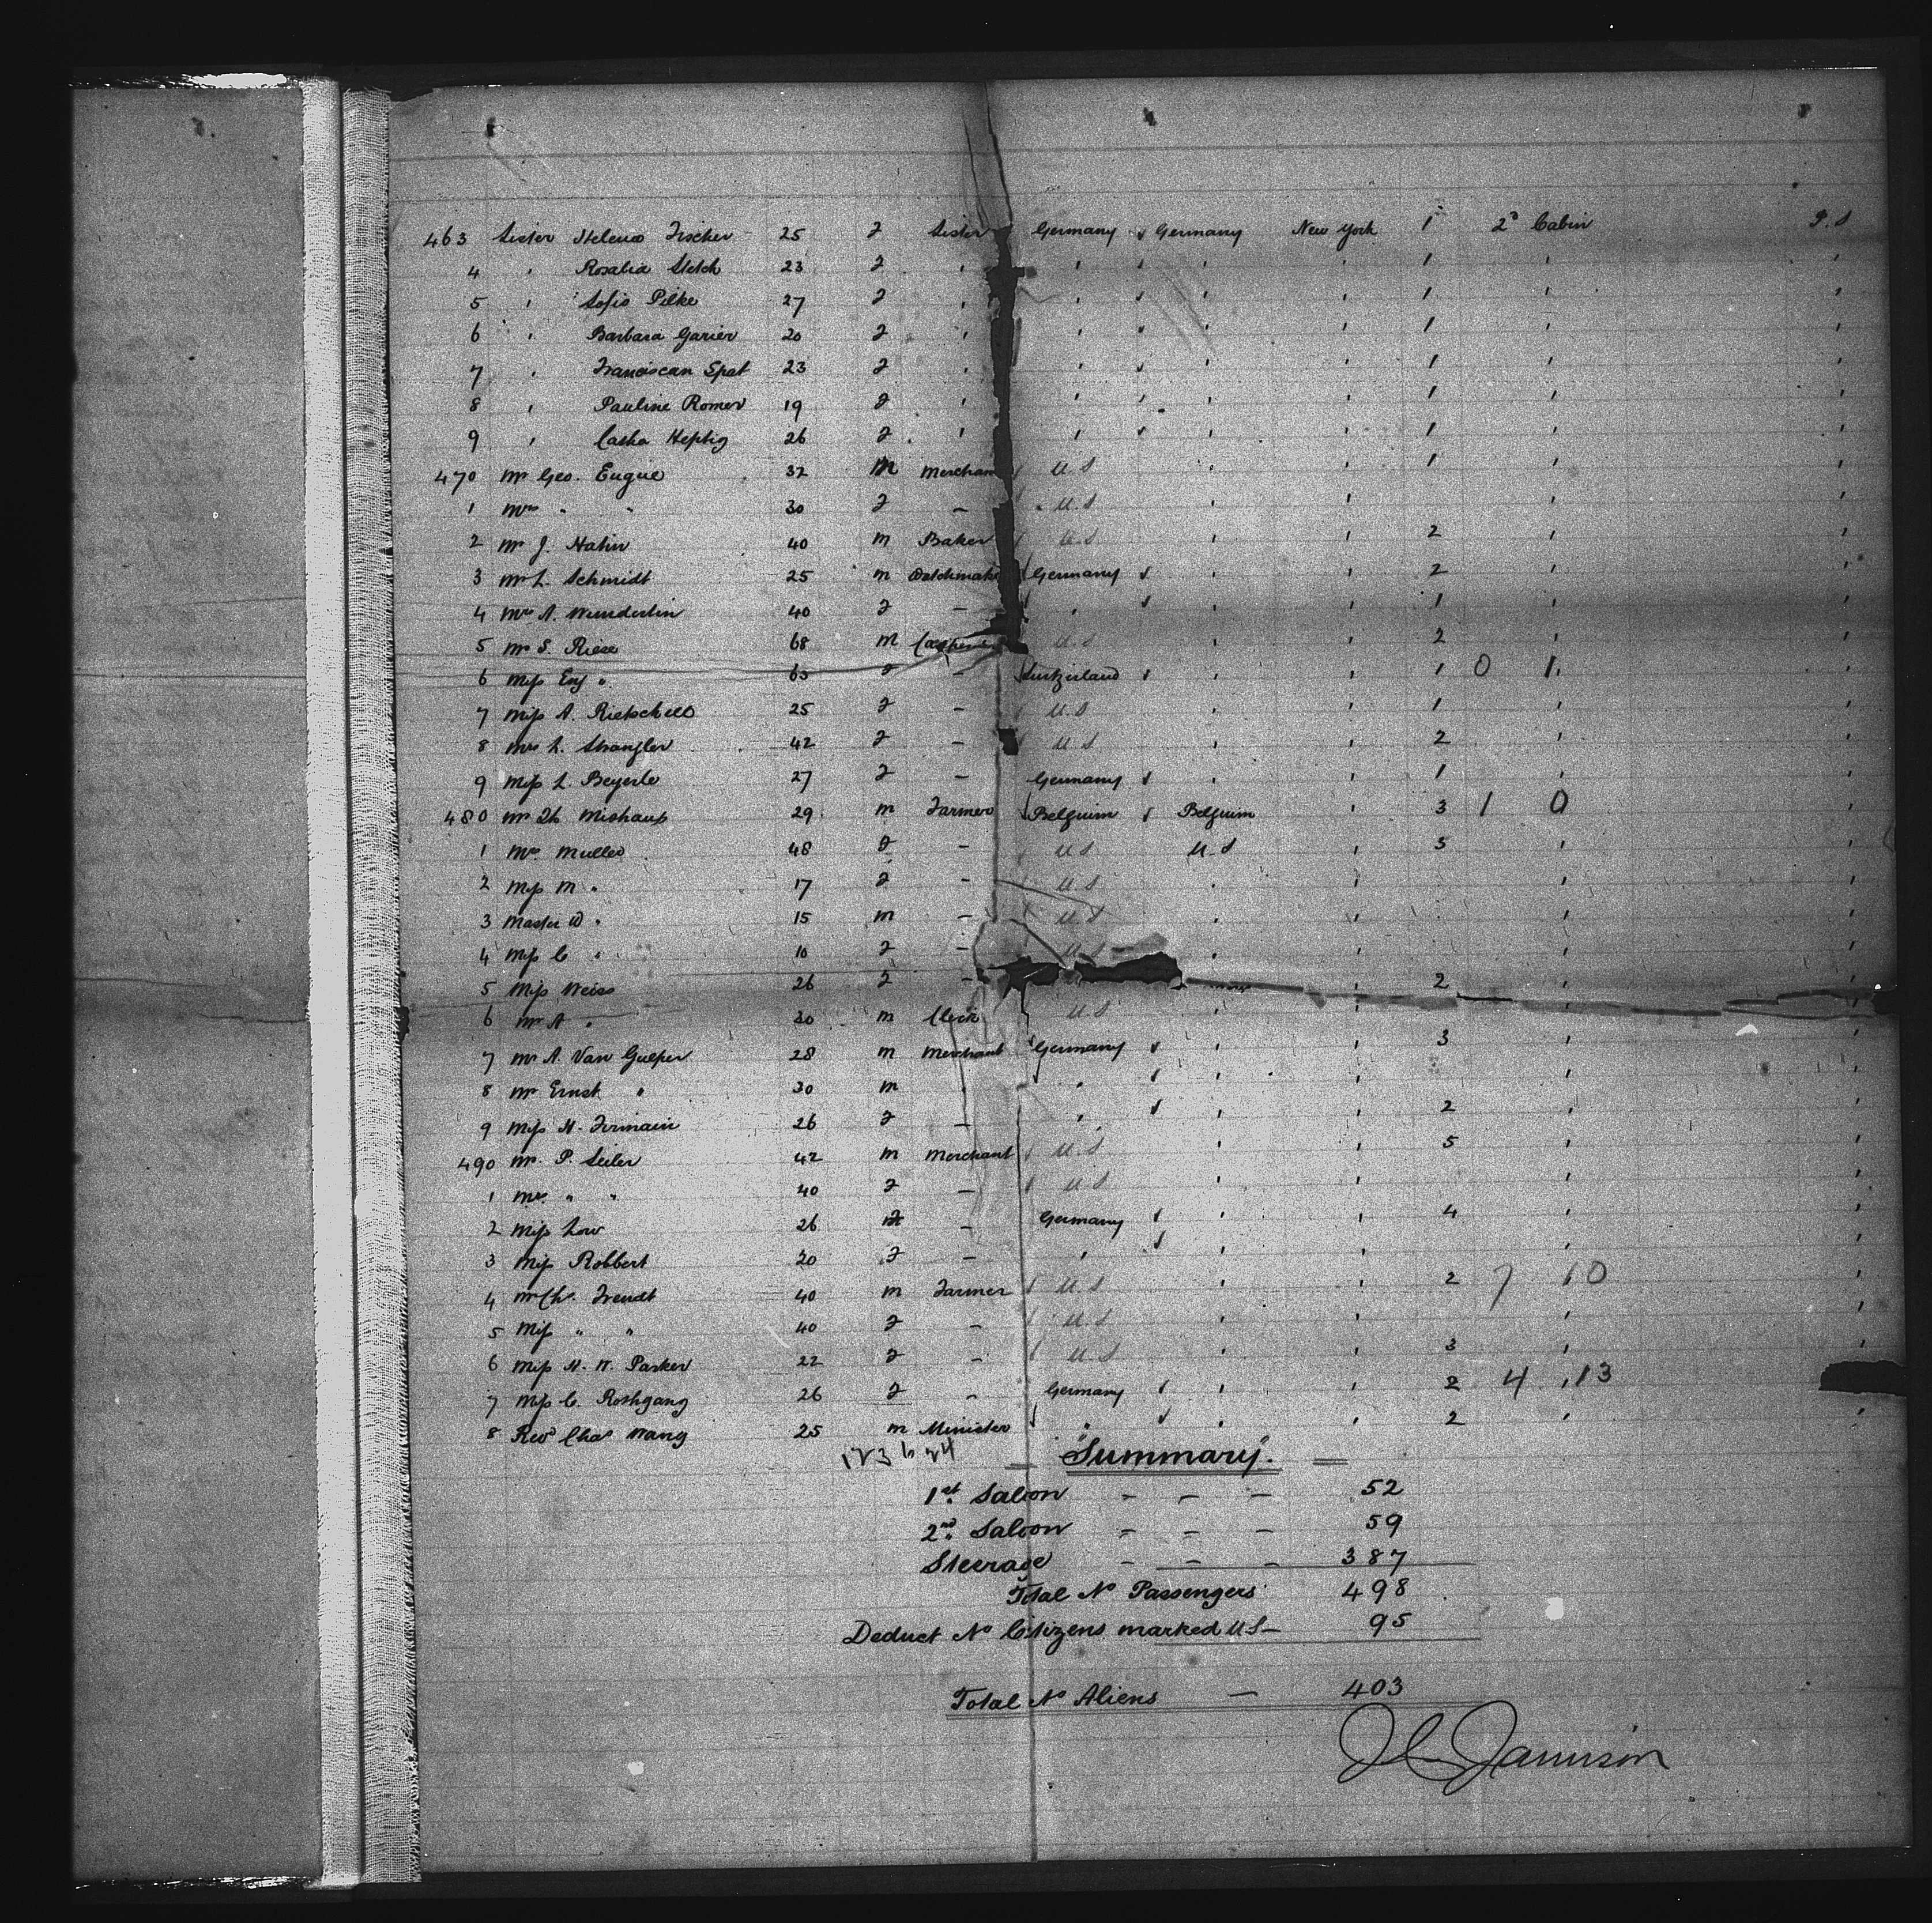 463 Sister Helena Fischer 25 F Sister Germany Germany New York 1 2d Cabin P.S
4 " Rosalia 23 F " " " " 1 " "
5 " Sofio Pilke 27 F " " " " 1 " "
6 " Barbara Garier 20 F " " " " 1 " "
7 " Franciscan Spat 23 F " " " " 1 " "
8 " Pauline Romer 19 F " " " " 1 " "
9 " Heptig 26 F " " " " 1 " "
470 Mr Geo. Eugue 32 M Merchan U.S " " 1 " "
1 Mrs " " 30 F — U.S " " " "
2 Mr J. Hahn 40 M Baker U.S " " 2 " "
3 Mr L. Schmidt 25 M Germany " " 2 " "
4 Mrs A. Wunderlin 40 F — " " " 1 " "
5 Mr S. Riese 68 M U.S " " 2 " "
6 Miss " 63 F — " " 1 0 1 "
7 Miss A. 25 F — U.S " " 1 " "
8 Mrs L. Strangler 42 F — U.S " " 2 " "
9 Miss L. Beyerle 27 F — Germany " " 1 " "
480 Mr Mishaux 29 M Farmer Belguim Belguim " 3 1 0 "
1 Mrs Muller 48 F — U.S U.S " 5 " "
2 Miss M " 17 F — U.S " " " "
3 Master W " 15 M — U.S " " " "
4 Miss C " 10 F — U.S " " " "
5 Miss Weiss 26 F — " 2 " "
6 Mr A " 30 M Clerk U.S " " " "
7 Mr A. Van Gulper 28 M Merchant Germany " " 3 " "
8 Mr Ernst " 30 M " " " " " "
9 Miss H. Firmain 26 F — " " " 2 " "
490 Mr. P. Seiler 42 M Merchant U.S " " 5 " "
1 Mrs " " 40 F — U.S " " " "
2 Miss Low 26 — Germany " " 4 " "
3 Miss Robbert 20 F — " " " " "
4 Mr Chs. Frendt 40 M Farmer U.S " " 2 7 10 "
5 Miss " " 40 F — U.S " " " "
6 Miss H. W. Parker 22 F — U.S " " 3 " "
7 Miss C. Rothgang 26 F — Germany " " 2 4 13
8 Revd Chas Wang 25 M Minister " " " 2 " "
— Summary. —
1st. Saloon — — — 52
2nd. Saloon — — — 59
Steerage — — — 387
Total No Passengers 498
Deduct No Citizens marked U.S — 95
Total No Aliens — 403
Jamison